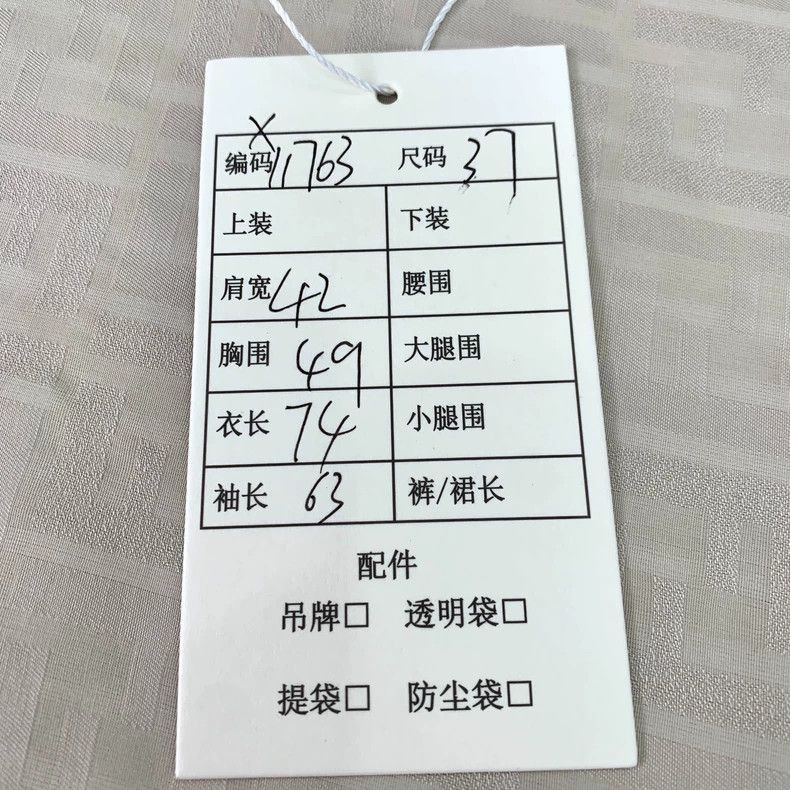 X
编码 11763 尺码 37
上装 下装
肩宽 42 腰围
胸围 49 大腿围
衣长 74 小腿围
袖长 63 裤/裙长
配件
吊牌□ 透明袋□
提袋□ 防尘袋□